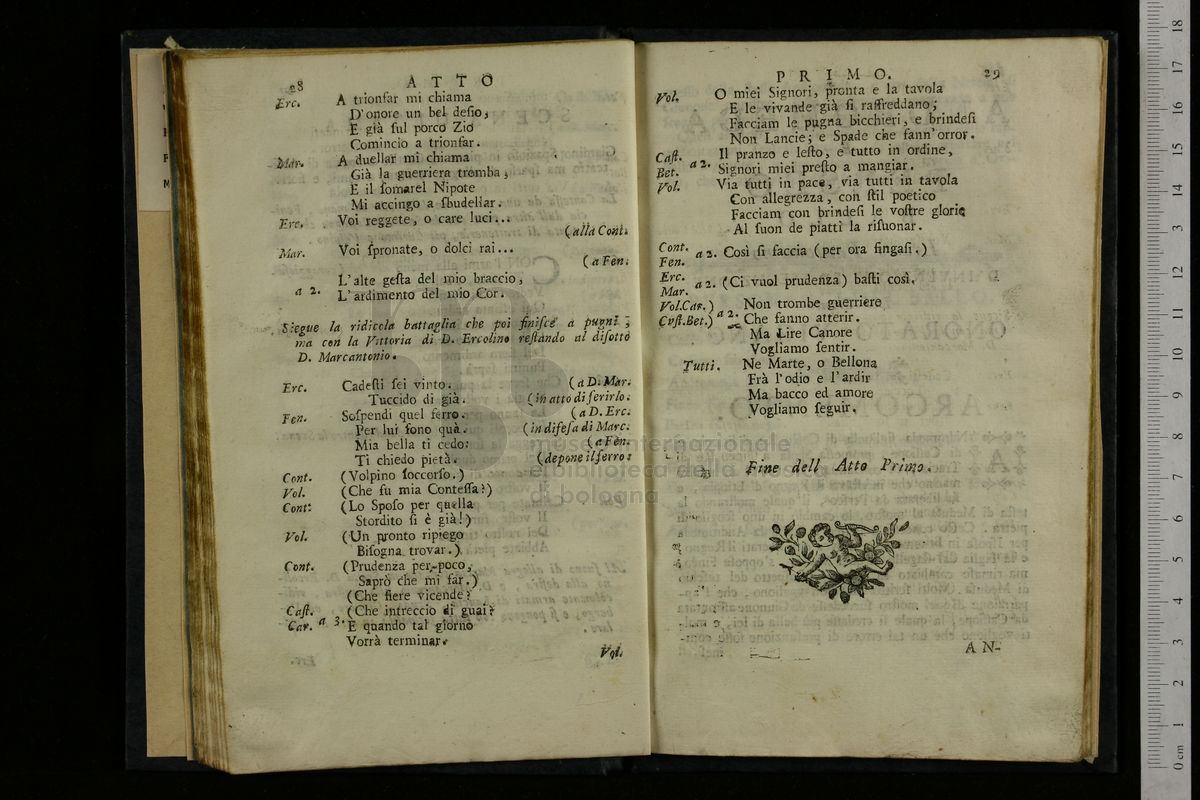 28 ATTO
Erc. A trionfar mi chiama
D'onore un bel desìo,
E già ſul porco Zio
Comincio a trionfar.
Mar. A duellar mi chiama
Già la guerriera tromba,
E il ſomarel Nipote
Mi accingo a ſbudellar.
Erc. Voi reggete, o care luci...
(alla Cont.
Mar. Voi ſpronate, o dolci rai...
(a Fen.
L'alte geſta del mio braccio,
a 2. L'ardimento del mio Cor.
Siegue la ridicola battaglia che poi finiſce a pugni,
ma con la Vittoria di D. Ercolino reſtando al diſotto
D. Marcantonio.
Erc. Cadeſti ſei vinto. (a D. Mar.
Tuccido di già. (in atto di ferirlo.
Fen. Soſpendi quel ferro. (a D. Erc.
Per lui ſono quà. (in difeſa di Marc.
Mia bella ti cedo: (a Fen.
Ti chiedo pietà. (depone il ferro:
Cont. (Volpino ſoccorſo.)
Vol. (Che fu mia Conteſſa?)
Cont. (Lo Spoſo per quella
Stordito ſi è già!)
Vol. (Un pronto ripiego
Biſogna trovar.)
Cont. (Prudenza per poco,
Saprò che mi far.)
(Che fiere vicende?
Caſt. (Che intreccio di guai?
Car. a 3. E quando tal giorno
Vorrà terminar.
Vol.
PRIMO. 29
Vol. O miei Signori, pronta e la tavola
E le vivande già ſi raffreddano;
Facciam le pugna bicchieri, e brindeſi
Non Lancie; e Spade che fann'orror.
Caſt. Il pranzo e leſto, e tutto in ordine,
Bet. a 2. Signori miei preſto a mangiar.
Vol. Via tutti in pace, via tutti in tavola
Con allegrezza, con ſtil poetico
Facciam con brindeſi le voſtre glorie
Al ſuon de piatti la riſuonar.
Cont.
Fen. a 2. Così ſi faccia (per ora fingaſi.)
Erc.
Mar. a 2. (Ci vuol prudenza) baſti così.
Vol.Car.) Non trombe guerriere
Cuſt.Bet.) a 2. Che fanno atterir.
Ma Lire Canore
Vogliamo ſentir.
Tutti. Ne Marte, o Bellona
Frà l'odio e l'ardir
Ma bacco ed amore
Vogliamo ſeguir.
Fine dell Atto Primo.
AN-
museo internazionale
e biblioteca della musica
di bologna
0 cm 1 2 3 4 5 6 7 8 9 10 11 12 13 14 15 16 17 18